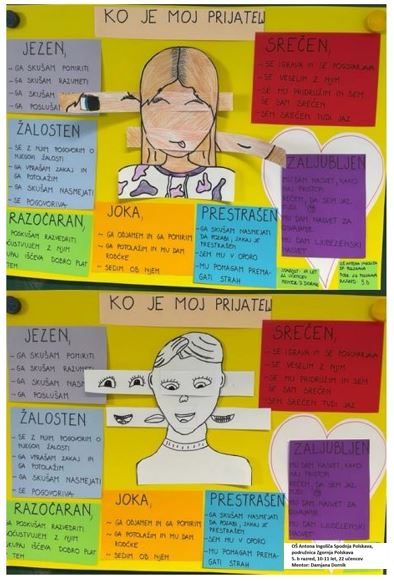 KO JE MOJ PRIJATELJ
JEZEN,
- GA SKUŠAM POMIRITI
- GA SKUŠAM RAZUMETI
- GA SKUŠAM
- GA POSLUŠA
SREČEN,
- SE IGRAVA IN SE POGOVARJAVA
- SE VESELIM Z NJIM
- SE MU PRIDRUŽIM IN SEM
SE DAM SREČEN
SEM SREČEN TUDI JAZ
ŽALOSTEN
- SE Z NJIM POGOVORIM O
NJEGOVI ŽALOSTI
- GA VPRAŠAM ZAKAJ IN
GA POTOLAŽIM
- GA SKUŠAM NASMEJATI
- SE POGOVORIVA
ZALJUBLJEN
MU DAM NASVET, KAKO
NAJ PRISTOPI
SREČEN, DA SEM ZALJ.
TUDI JAZ
MU DAM NASVET ZA
MU DAM LJUBEZENSKI
NASVET
RAZOČARAN,
POSKUŠAM RAZVEDRITI
SOČUSTVUJEM Z NJIM
SKUPAJ IŠČEVA DOBRO PLAT
TEM
JOKA,
- GA OBJAMEM IN GA POMIRIM
- GA POTOLAŽIM IN MU DAM
ROBČKE
- SEDIM OB NJEM
PRESTRAŠEN
GA SKUŠAM NASMEJATI
DA POZABI, ZAKAJ JE
PRESTRAŠEN
SEM MU V OPORO
MU POMAGAM PREMA-
GATI STRAH
KO JE MOJ PRIJATELJ
JEZEN,
- GA SKUŠAM POMIRITI
- GA SKUŠAM RAZUM
- GA SKUŠAM NASM
- GA POSLUŠAM
SREČEN,
- SE IGRAVA IN SE POGOVARJAVA
- SE VESELIM Z NJIM
- SE MU PRIDRUŽIM IN SEM
SE DAM SREČEN
SEM SREČEN TUDI JAZ
ŽALOSTEN
- SE Z NJIM POGOVORIM O
NJEGOVI ŽALOSTI
- GA VPRAŠAM ZAKAJ IN
GA POTOLAŽIM
- GA SKUŠAM NASMEJATI
- SE POGOVORIVA
ZALJUBLJEN
MU DAM NASVET, KAKO
NAJ PRISTOPI
MU DAM NASVET ZA
MU DAM LJUBEZENSKI
RAZOČARAN,
POSKUŠAM RAZVEDRITI
SOČUSTVUJEM Z NJIM
SKUPAJ IŠČEVA DOBRO PLAT
JOKA,
- GA OBJAMEM IN GA POMIRIM
- GA POTOLAŽIM IN MU DAM
ROBČKE
- SEDIM OB NJEM
PRESTRAŠEN
GA SKUŠAM NASMEJATI
DA POZABI, ZAKAJ JE
PRESTRAŠEN
SEM MU V OPORO
MU POMAGAM PREMA-
GATI STRAH
OŠ Antona Ingoliča Spodnja Polskava,
podružnica Zgornja Polskava
5. b razred, 10-11 let, 22 učencev
Mentor: Damjana Dornik